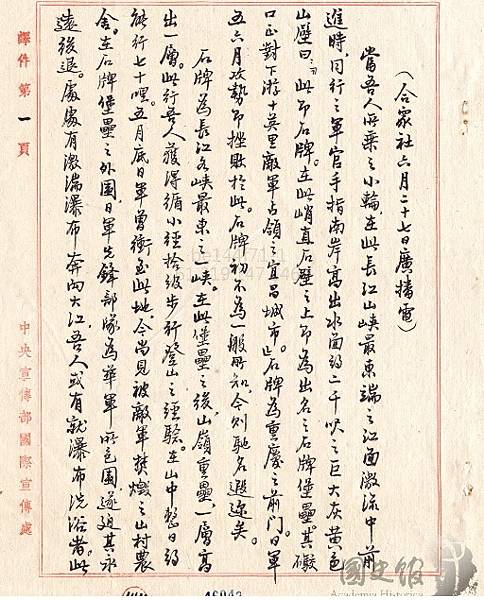 （合眾社六月二十七日廣播電）
當吾人所乘之小輪在此長江山峽最東端之江面激流中前
進時同行之軍官手指南岸高出水面約二千呎之巨大灰黃色
山壁曰此即石牌在此峭直石壁之上即為出名之石牌堡壘其礮
口正對下游十英里敵軍占領之宜昌城市石牌為重慶之前門日軍
五六月攻勢即挫敗於此石牌初不為一般所知今則馳名遐邇矣
石牌為長江各峽最東之一峽在此堡壘之後山嶺重疊一層高
出一層此行吾人獲得循小徑拾級步行登山之經驗在山中整日約
能行七十哩五月底日軍曾衝至此地今尚見被敵軍焚燬之山村農
舍在石牌堡壘之外圍日軍先鋒部隊為華軍所包圍遂迫其永
遠後退處處有激湍瀑布奔向大江吾人或有就瀑布洗浴者此
譯件第一頁
中央宣傳部國際宣傳處
國史館
Academia Historica